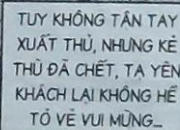 TUY KHÔNG TẬN TAY
XUẤT THỦ, NHƯNG KẺ
THÙ ĐÃ CHẾT, TẠ YÊN
KHÁCH LẠI KHÔNG HỀ
TỎ VẺ VUI MỪNG...